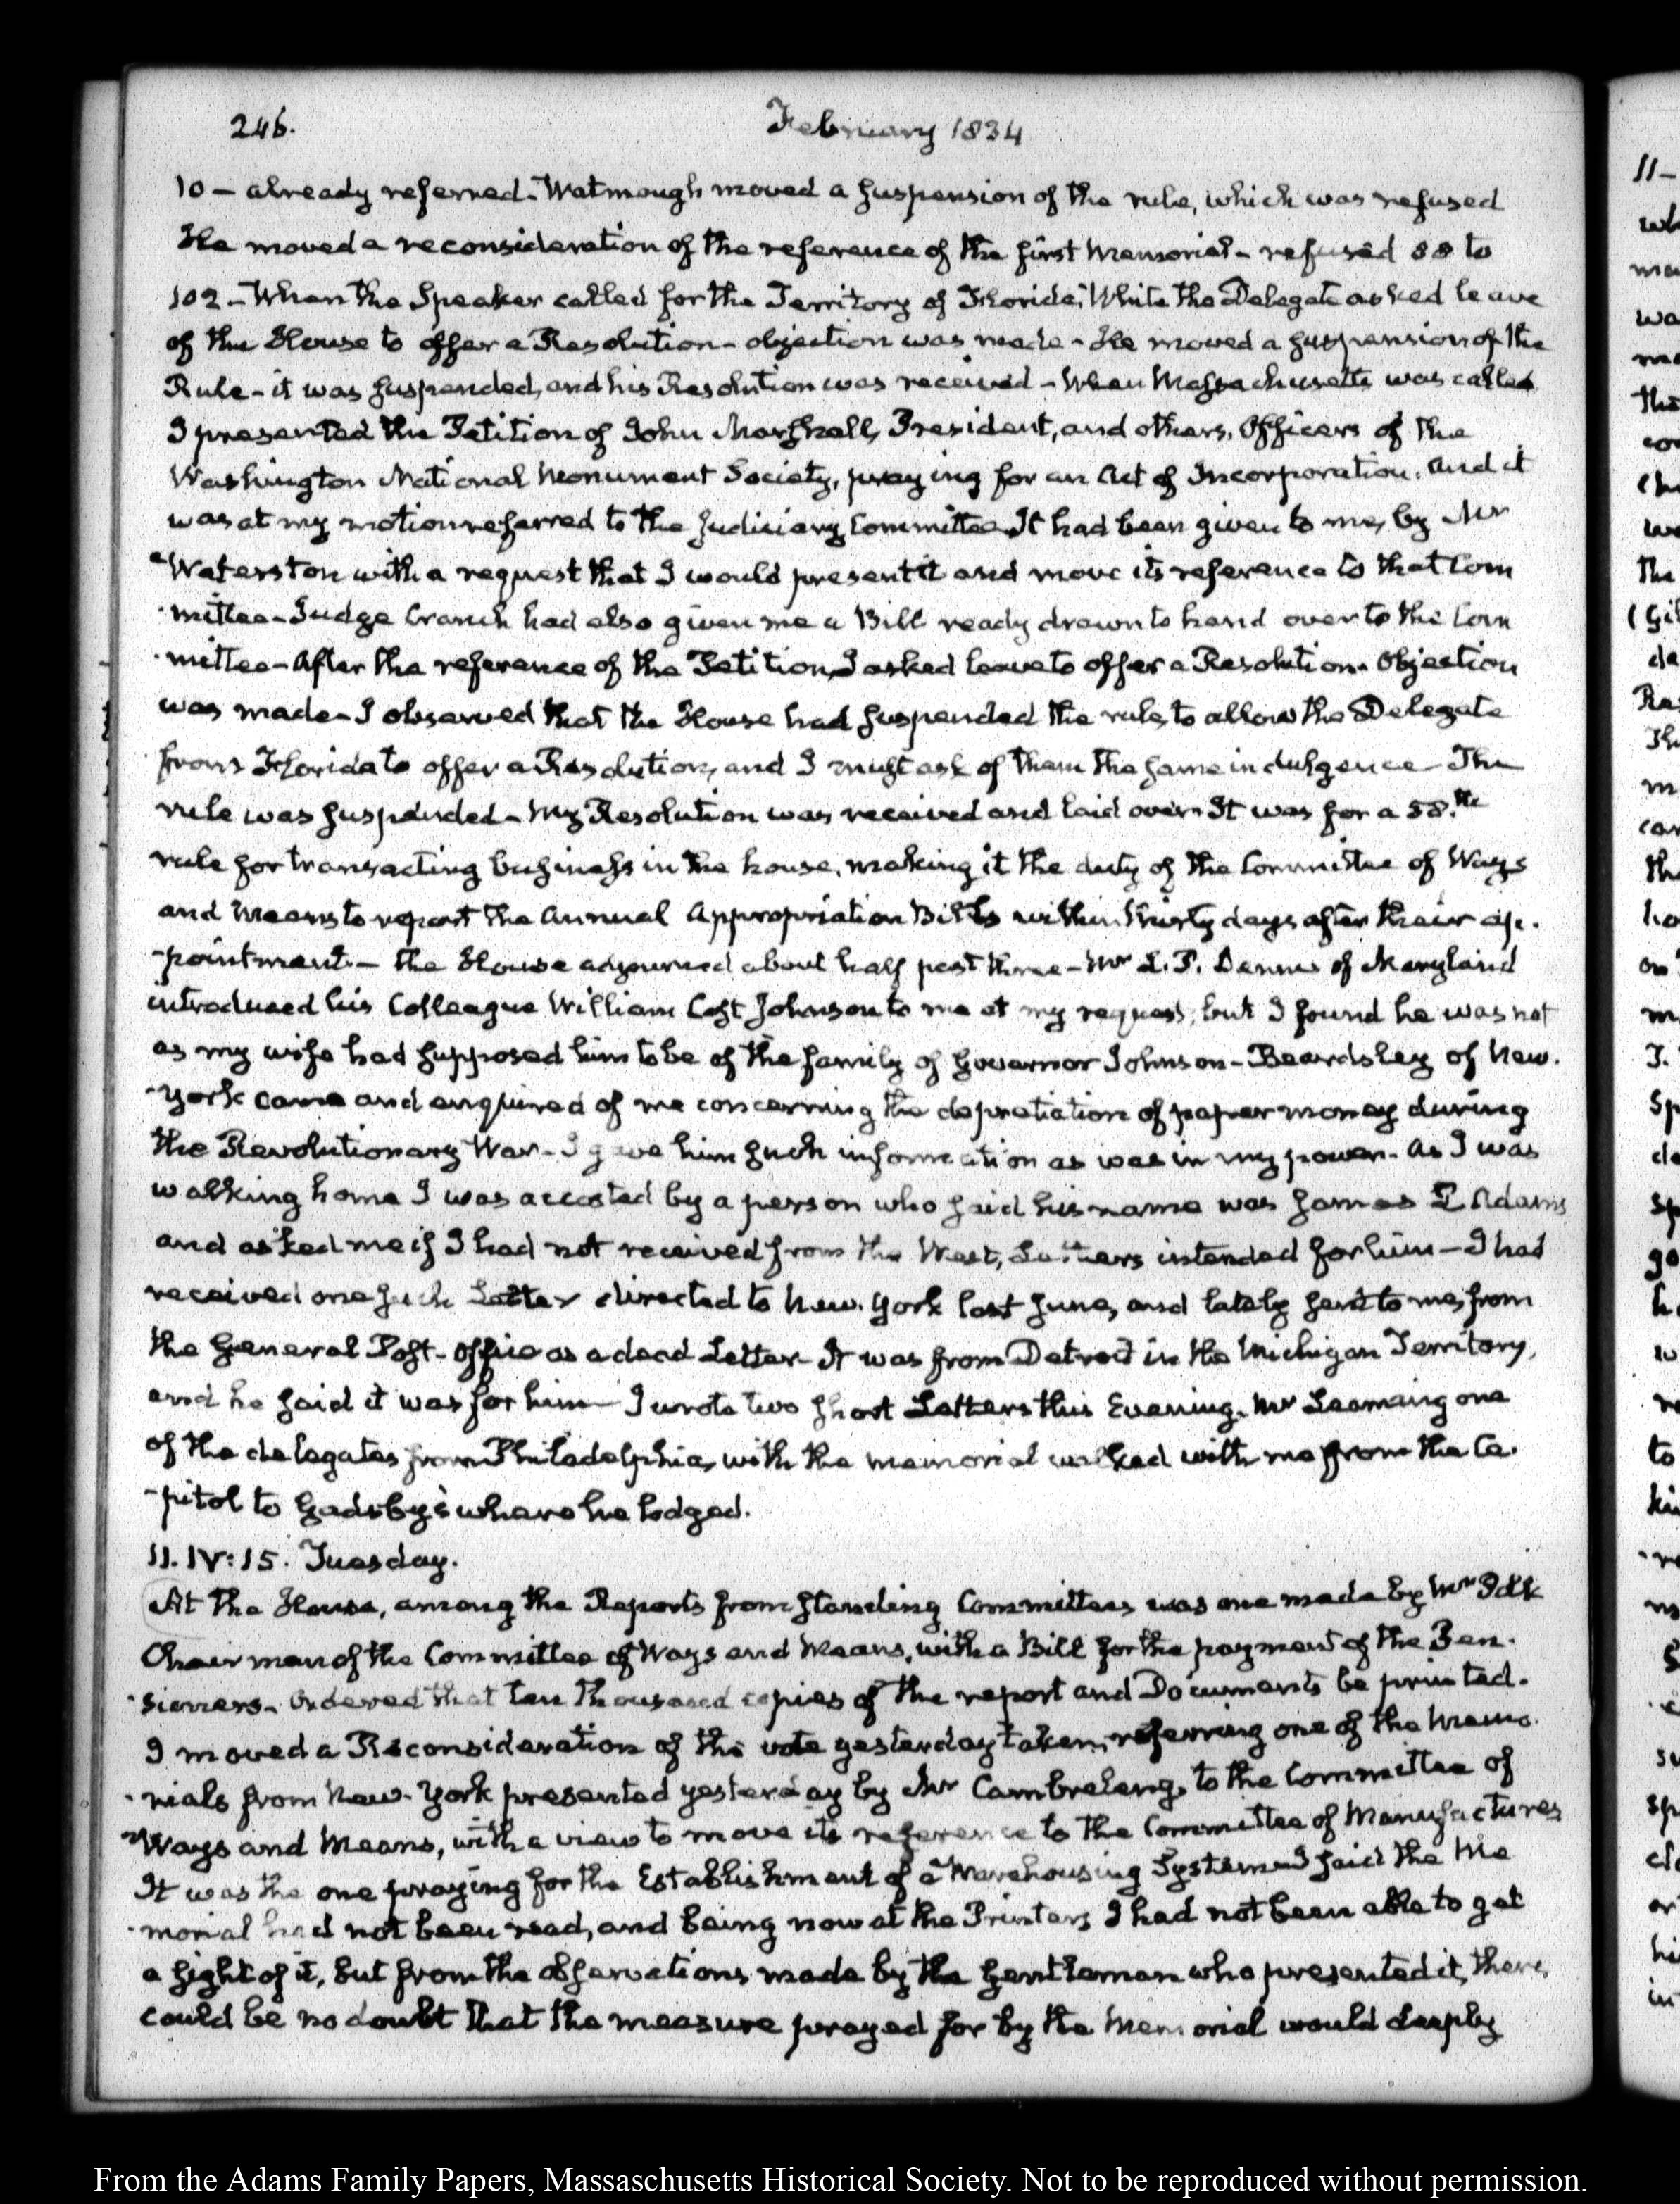 246.
February 1834
10 — already referred. Watmough moved a suspension of the rule, which was refused
He moved a reconsideration of the reference of the first Memorial - refused 88 to
102 - When the Speaker called for the Territory of Florida, White the Delegate asked leave
of the House to offer a Resolution - objection was made - He moved a suspension of the
Rule - it was suspended, and his Resolution was received - When Massachusetts was called
I presented the Petition of John Marshall, President, and others, Officers of the
Washington National Monument Society, praying for an Act of Incorporation. And it
was at my motion referred to the Judiciary Committee. It had been given to me, by Mr
Waterston with a request that I would present it and move its reference to that Com
-mittee - Judge Cranch had also given me a Bill ready drawn to hand over to the Com
-mittee - After the reference of the Petition, I asked leave to offer a Resolution. Objection
was made - I observed that the House had suspended the rule, to allow the Delegate
from Florida to offer a Resolution, and I must ask of them the same indulgence - The
rule was suspended - My Resolution was received and laid over. It was for a 58.th
rule for transacting business in the house, making it the duty of the Committee of Ways
and Means to report the annual Appropriation Bills within thirty days after their ap.
-pointment. - The House adjourned about half past three - Mr L. P. Dennis of Maryland
introduced his Colleague William Cost Johnson to me at my request, but I found he was not
as my wife had supposed him to be of the family of Governor Johnson - Beardsley of New.
-York came and enquired of me concerning the depretiation of paper money during
the Revolutionary War - I gave him such information as was in my power. As I was
walking home I was accosted by a person who said his name was James Adams
and asked me if I had not received from the West, Letters intended for him - I had
received one such Letter directed to New. York last June, and lately sent to me, from
the General Post-Office as a dead Letter - It was from Detroit in the Michigan Territory,
and he said it was for him - I wrote two short Letters this Evening. Mr Leaming one
of the delegates from Philadelphia, with the memorial walked with me from the Ca.
-pitol to Gadsby's where he lodged.
11. IV:15. Tuesday.
At the House, among the Reports from standing Committees was one made by Mr Polk
Chairman of the Committee of Ways and Means, with a Bill for the payment of the Pen.
-sioners. Ordered that ten thousand copies of the report and Documents be printed.
I moved a Reconsideration of the vote yesterday taken, referring one of the Memo.
-rials from New-York presented yesterday by Mr Cambreleng, to the Committee of
Ways and Means, with a view to move its reference to the Committee of Manufactures
It was the one praying for the Establishment of a Warehousing System. I said the Me
-morial had not been read, and being now at the Printers I had not been able to get
a sight of it, but from the observations made by the Gentleman who presented it, there
could be no doubt that the measure prayed for by the Memorial would deeply
From the Adams Family Papers, Massaschusetts Historical Society. Not to be reproduced without permission.